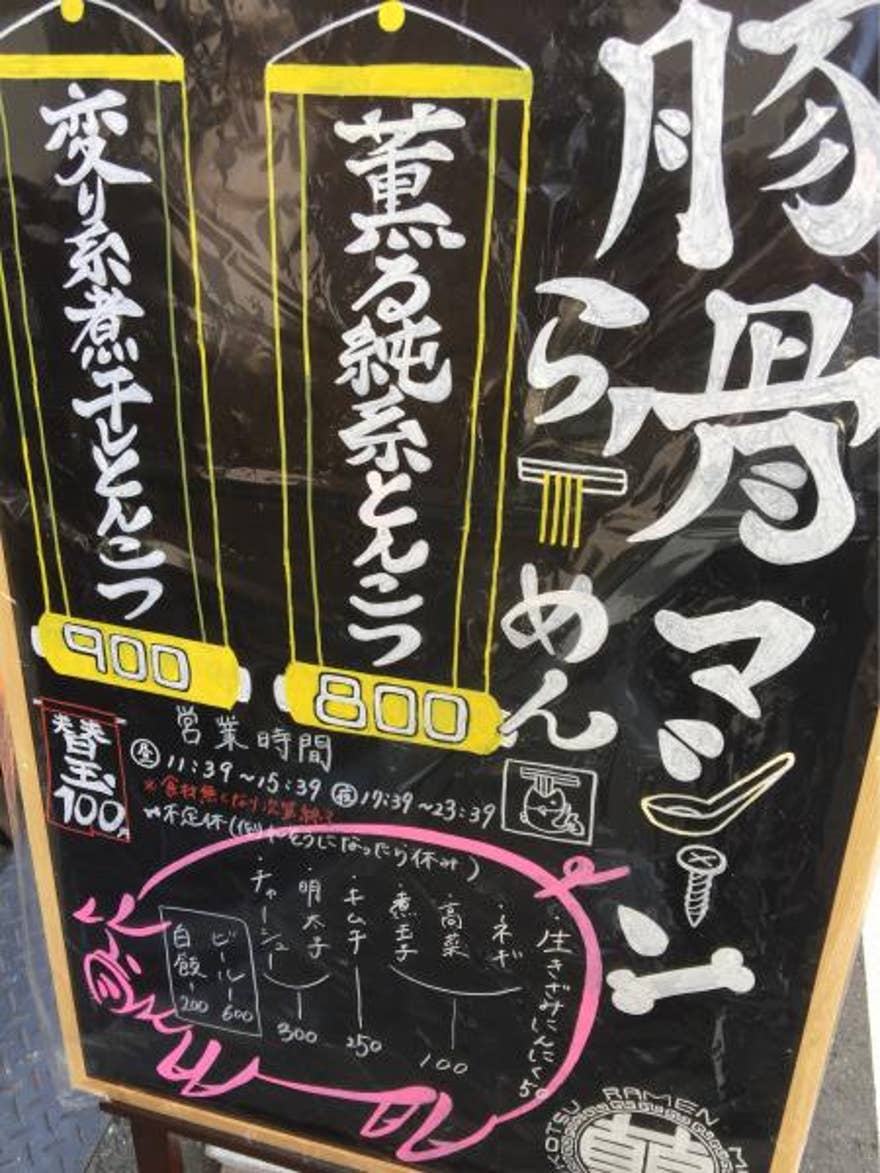 豚骨マシン
らーめん
薫る純系とんこつ
800
変り系煮干しとんこつ
900
替玉
100円
営業時間
昼 11:39～15:39 夜 17:39～23:39
※食材無くなり次第終了
不定休(倒れそうになったら休み)
・生きざみにんにく50
・ネギ
・高菜
・煮玉子
100
・キムチ
250
・明太子
・チャーシュー
300
ビール-600
白飯-200
KOTSU RAMEN M